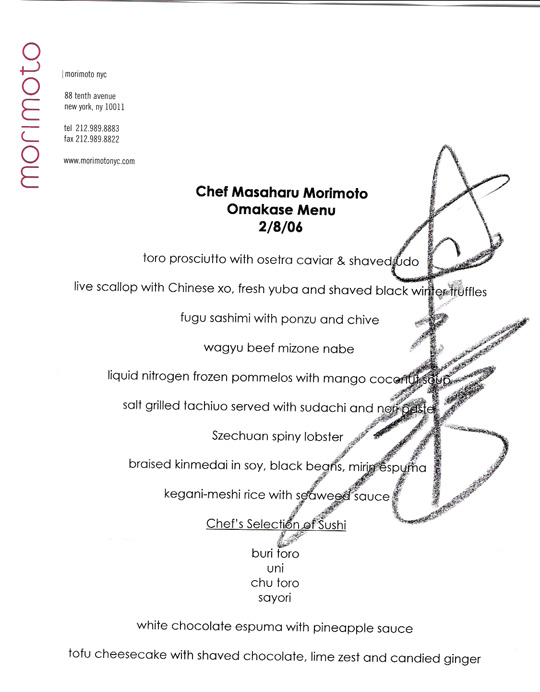 morimoto
morimoto nyc
88 tenth avenue
new york, ny 10011
tel 212.989.8883
fax 212.989.8822
www.morimotonyc.com
Chef Masaharu Morimoto
Omakase Menu
2/8/06
toro prosciutto with osetra caviar & shaved udo
live scallop with Chinese xo, fresh yuba and shaved black winter truffles
fugu sashimi with ponzu and chive
wagyu beef mizone nabe
liquid nitrogen frozen pommelos with mango coconut soup
salt grilled tachiuo served with sudachi and nori paste
Szechuan spiny lobster
braised kinmedai in soy, black beans, mirin espuma
kegani-meshi rice with seaweed sauce
Chef's Selection of Sushi
buri toro
uni
chu toro
sayori
white chocolate espuma with pineapple sauce
tofu cheesecake with shaved chocolate, lime zest and candied ginger